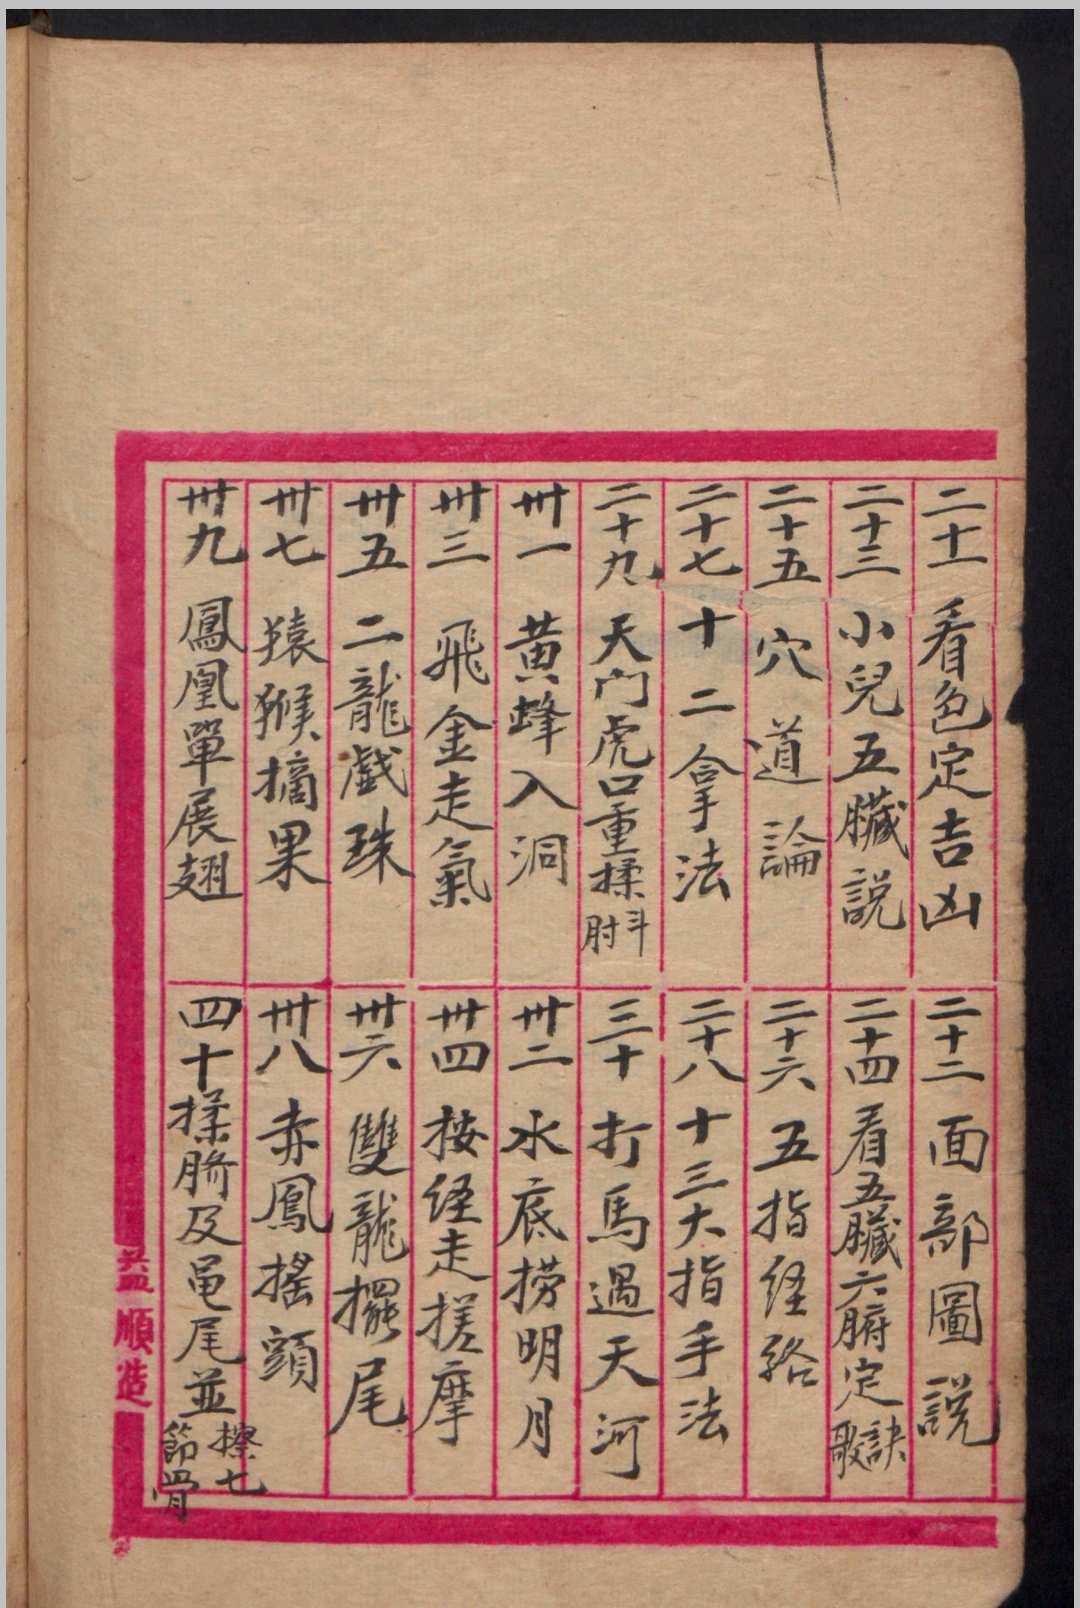 二十一 看色定吉凶
二十二 面部圖説
二十三 小兒五臟説
二十四 看五臟六腑定訣歌
二十五 穴道論
二十六 五指经络
二十七 十二拿法
二十八 十三大指手法
二十九 天门虎口重揉斗肘
三十 打馬過天河
卅一 黄蜂入洞
卅二 水底捞明月
卅三 飛金走氣
卅四 按经走搓摩
卅五 二龍戯珠
卅六 雙龍擺尾
卅七 猿猴摘果
卅八 赤鳳搖頭
卅九 鳳凰單展翅
四十 揉臍及黾尾並擦七節骨
益順造